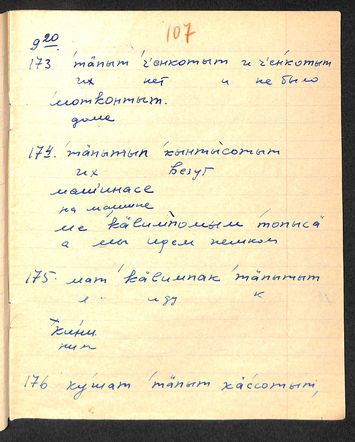 107
9 20.
173 тäпыт ченкотыт и ченкотыт
их нет и не было
мотконтыт.
дома
174. тäпытып кынтысотыт
их везут
машинасе
на машине
ме кäлимпомым топысä
а мы идем пешком
175. мат кäлимпак тäпытыт
я иду к
кини.
ним
176 кушат тäпыт кäссотыт,